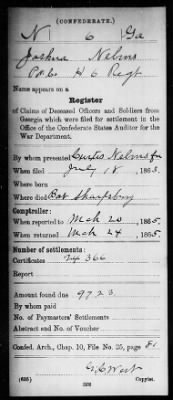 (CONFEDERATE.)
N 6 Ga
Joshua Nelms
Co. H 6 Regt
Name appears on a
Register
of Claims of Deceased Officers and Soldiers from
Georgia which were filed for settlement in the
Office of the Confederate States Auditor for the
War Department.
By whom presented Curtis Nelms
When filed July 18, 1863.
Where born
Where died Bat Sharpsburg
Comptroller:
When reported to Mch 20, 1865.
When returned Mch 24, 1865.
Number of settlements:
Certificates 366
Report
Amount found due 97 23
By whom paid
No. of Paymasters' Settlements
Abstract and No. of Voucher
Confed. Arch., Chap. 10, File No. 25, page 81
West
(635) Copyist.